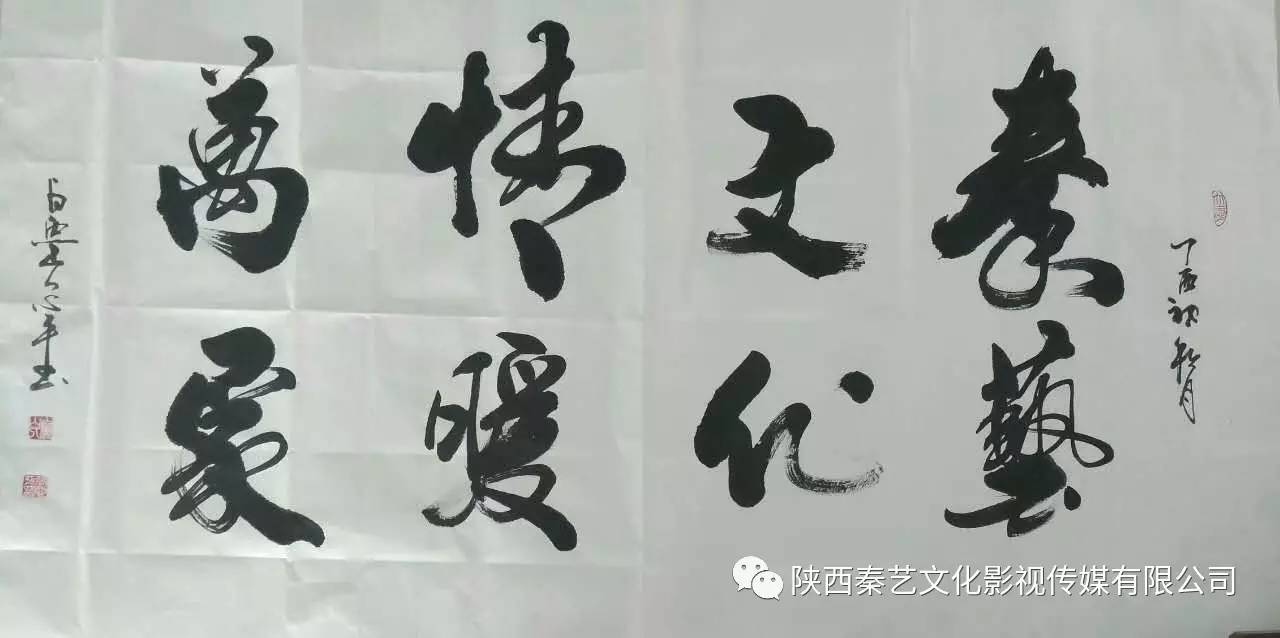 丁酉初秋月
秦藝
文化
情暖
萬家
陕西秦艺文化影视传媒有限公司